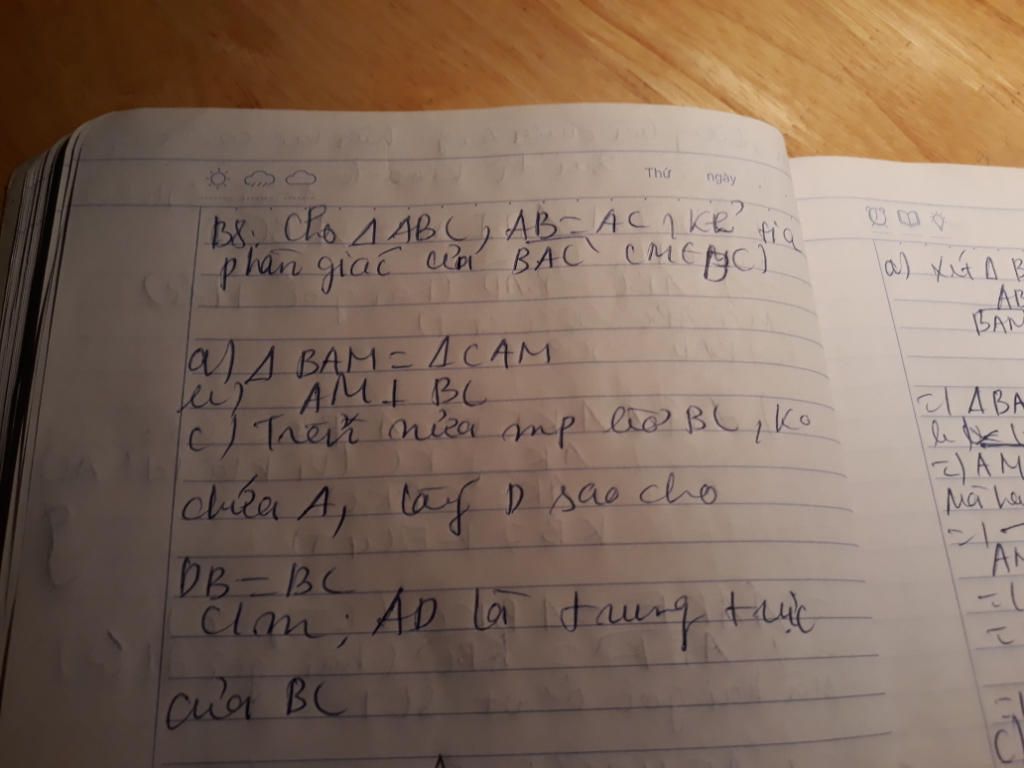 Thứ ngày
B8: Cho Δ ABC, AB = AC, Kẻ tia
phân giác của BAC (M∈BC)
a) Δ BAM = ΔCAM
b) AM ⊥ BC
c) Trên nửa mp bờ BC, Ko
chứa A, lấy D sao cho
DB = BC
Cm: AD là trung trực
của BC
a) Xét Δ B
AB
BAM
=) Δ BA
=) AM
Mà ha
=)
AM
=)
=
=)
C